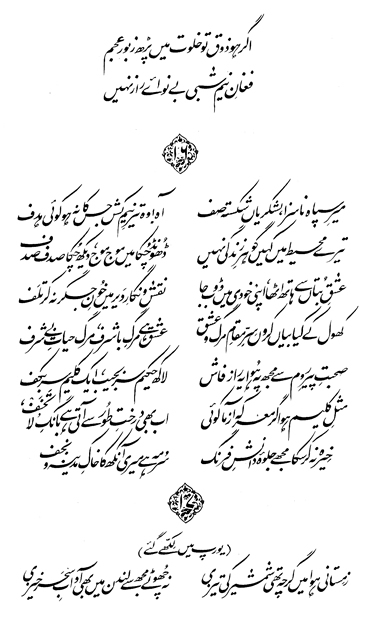 اگر ہو ذوق تو خلوت میں پڑھ زبور عجم
فغانِ نیم شبی بے نوائے راز نہیں
۱۶
میر سپاہ ناسزا، لشکریاں شکستہ صف
آہ! وہ تیر نیم کش جس کا نہ ہو کوئی ہدف
تیرے محیط میں کہیں گوہر زندگی نہیں
ڈھونڈ چکا میں موج موج، دیکھ چکا صدف صدف
عشق بتاں سے ہاتھ اٹھا، اپنی خودی میں ڈوب جا
نقش و نگار دیر میں خون جگر نہ کر تلف
کھول کے کیا بیاں کروں سر مقام مرگ و عشق
عشق ہے مرگ با شرف، مرگ حیات بے شرف
صحبت پیر روم سے مجھ پہ ہوا یہ راز فاش
لاکھ حکیم سر بجیب، ایک کلیم سر بکف
مثل کلیم ہو اگر معرکہ آزما کوئی
اب بھی درخت طور سے آتی ہے بانگ لا تخف
خیرہ نہ کر سکا مجھے جلوۂ دانش فرنگ
سرمہ ہے میری آنکھ کا خاک مدینہ و نجف
(یورپ میں لکھے گئے)
زمستانی ہوا میں گرچہ تھی شمشیر کی تیزی
نہ چھوٹے مجھ سے لندن میں بھی آداب سحر خیزی